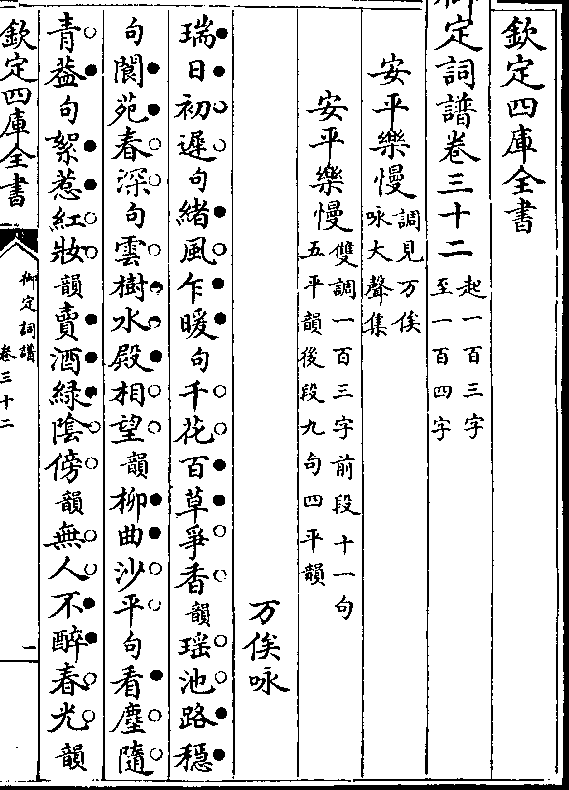 欽定四庫全書
御定詞譜卷三十二 起一百三字
至一百四字
安平樂慢 調見万俟
咏大聲集
安平樂慢 雙調一百三字前段十一句
五平韻後段九句四平韻
万俟咏
瑞日初遲句緒風乍暖句千花百草爭香韻瑶池路穩
句閬苑春深句雲樹水殿相望韻柳曲沙平句看塵隨
青葢句絮惹紅妝韻賣酒緑陰傍韻無人不醉春光韻
欽定四庫全書
御定詞譜
卷三十二